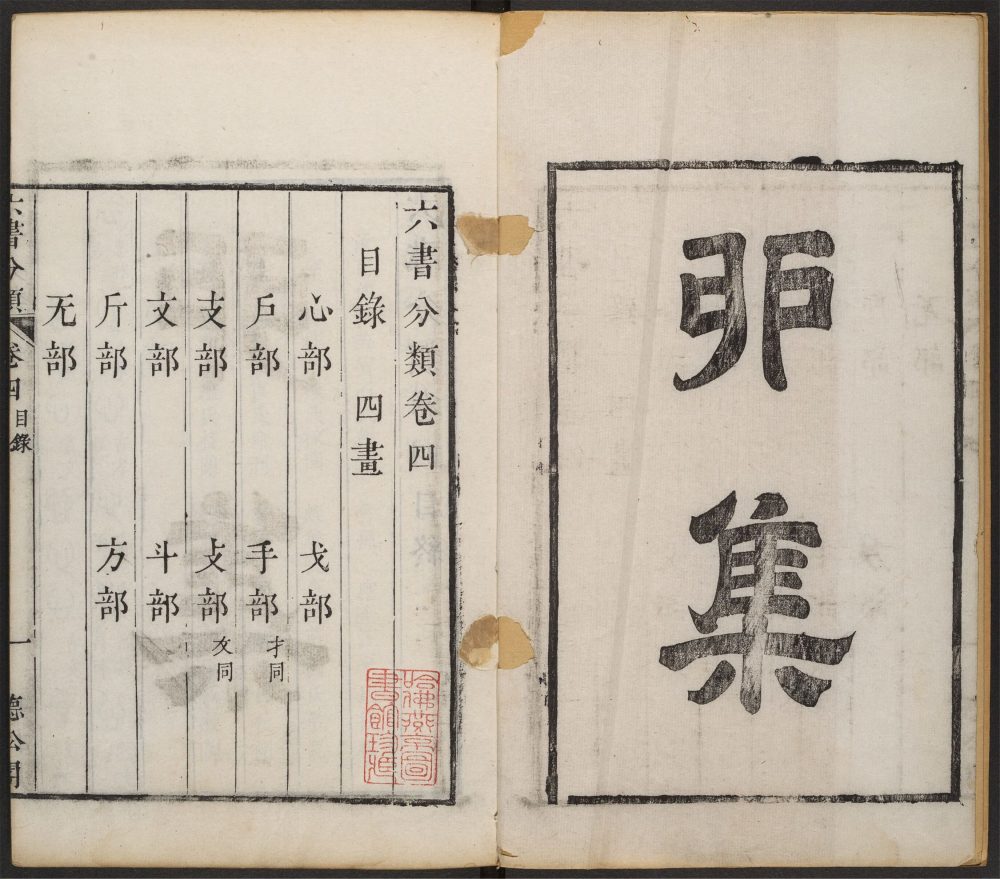 卯集
六書分類卷四
目錄 四畫
心部 戈部
戶部 手部 扌同
支部 攴部 攵同
文部 斗部
斤部 方部
无部
六書分類 卷四 目錄 一
哈佛燕京圖
書館珍藏